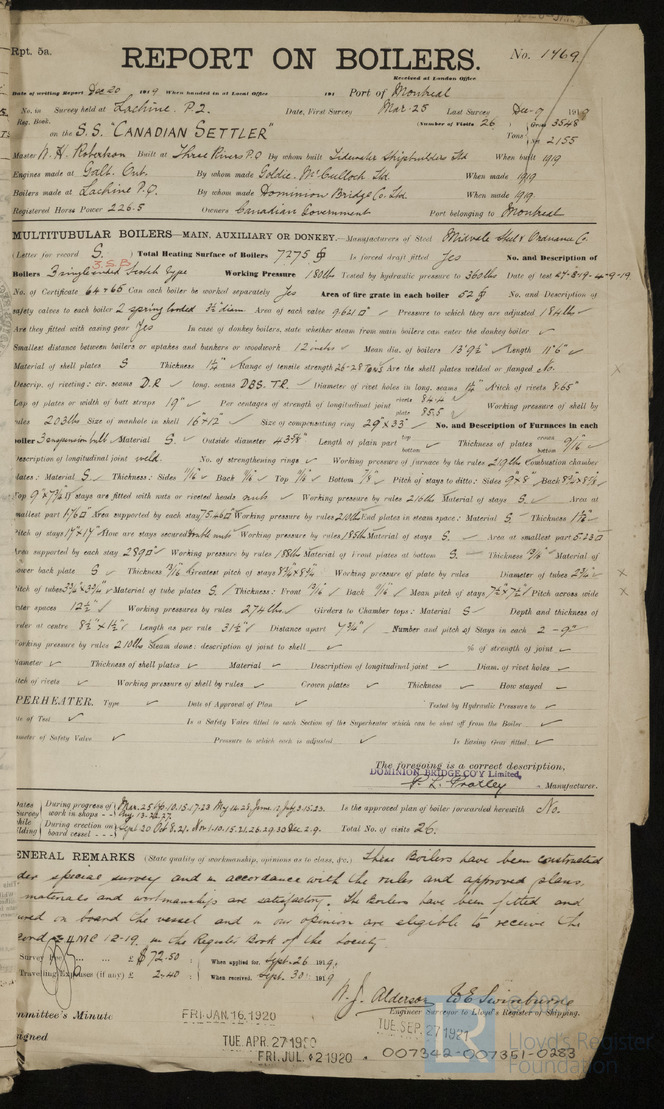 Rpt. 5a.
REPORT ON BOILERS.
No. 1469
Received at London Office
Date of writing Report Dec 20 1919 When handed in at Local Office 191 Port of Montreal
No. in Survey held at Lachine. P.Q. Date, First Survey Mar. 25 Last Survey Dec. 9 1919
Reg. Book. (Number of Visits 26) Gross 3548
on the S.S. "CANADIAN SETTLER" Tons Net 2155
Master N. H. Robertson Built at Three Rivers P.Q By whom built Tidewater Shipbuilders Ltd When built 1919
Engines made at Galt. Ont. By whom made Goldie. McCulloch Ltd. When made 1919
Boilers made at Lachine P.Q. By whom made Dominion Bridge Co. Ltd. When made 1919.
Registered Horse Power 226.5 Owners Canadian Government Port belonging to Montreal
MULTITUBULAR BOILERS—MAIN, AUXILIARY OR DONKEY.—Manufacturers of Steel Midvale Steel & Ordnance Co
(Letter for record S.) Total Heating Surface of Boilers 7275 Is forced draft fitted Yes No. and Description of
3.S.B.
Boilers 3 single ended Scotch type Working Pressure 180 lbs Tested by hydraulic pressure to 360 lbs Date of test
No. of Certificate 64 & 65 Can each boiler be worked separately Yes Area of fire grate in each boiler 52 No. and Description of
safety valves to each boiler 2 spring loaded 3½ diam Area of each valve 9.621 Pressure to which they are adjusted 184 lbs
Are they fitted with easing gear Yes In case of donkey boilers, state whether steam from main boilers can enter the donkey boiler
Smallest distance between boilers or uptakes and bunkers or woodwork 12 inches Mean dia. of boilers 13' 9½" Length 11' 6"
Material of shell plates S Thickness Range of tensile strength 26-28 Tons Are the shell plates welded or flanged No.
Descrip. of riveting: cir. seams D.R long. seams D.B.S. T.R. Diameter of rivet holes in long. seams 1¼" Pitch of rivets 8.65"
Lap of plates or width of butt straps 19" Per centages of strength of longitudinal joint rivets 84.4 plate 85.5 Working pressure of shell by
rules 203 lbs Size of manhole in shell 16"×12" Size of compensating ring 29"×33" No. and Description of Furnaces in each
boiler 3 suspension bulb Material S. Outside diameter Length of plain part top bottom Thickness of plates crown bottom 9/16
Description of longitudinal joint weld. No. of strengthening rings Working pressure of furnace by the rules 219 lbs Combustion chamber
plates: Material S Thickness: Sides 11/16 Back 11/16 Top 11/16 Bottom 7/8 Pitch of stays to ditto: Sides 9"×8" Back
Top If stays are fitted with nuts or riveted heads nuts Working pressure by rules 216 lbs Material of stays S. Area at
smallest part 1.76 Area supported by each stay Working pressure by rules 210 lbs End plates in steam space: Material S. Thickness
Pitch of stays 17"×17" How are stays secured double nuts Working pressure by rules 185 lbs Material of stays S. Area at smallest part 5.23
Area supported by each stay 289 Working pressure by rules 188 lbs Material of Front plates at bottom S. Thickness Material of
Lower back plate S Thickness Greatest pitch of stays Working pressure of plate by rules Diameter of tubes
Pitch of tubes Material of tube plates S. Thickness: Front Back 11/16 Mean pitch of stays 7½"×7½" Pitch across wide
water spaces 12½" Working pressures by rules 274 lbs Girders to Chamber tops: Material S Depth and thickness of
girder at centre 8½"×1½" Length as per rule 31½" Distance apart 7¾" Number and pitch of Stays in each 2 - 9"
Working pressure by rules 210 lbs Steam dome: description of joint to shell % of strength of joint
Diameter Thickness of shell plates Material Description of longitudinal joint Diam. of rivet holes
Pitch of rivets Working pressure of shell by rules Crown plates Thickness How stayed
PERHEATER. Type Date of Approval of Plan Tested by Hydraulic Pressure to
Date of Test Is a Safety Valve fitted to each Section of the Superheater which can be shut off from the Boiler
Diameter of Safety Valve Pressure to which each is adjusted Is Easing Gear fitted
The foregoing is a correct description,
DOMINION BRIDGE CO'Y Limited,
Manufacturer.
Dates During progress of Mar. 25 Apl. 10.15.17.23 May 14.23. June 12 July 3.15.23.
Survey work in shops Aug. 13.22.27.
while During erection on Sept 20 Oct 8.21. Nov 1.10.15.21.26.29.30 Dec. 2.9.
Building board vessel
Is the approved plan of boiler forwarded herewith No.
Total No. of visits 26.
ENERAL REMARKS (State quality of workmanship, opinions as to class, &c.) These Boilers have been constructed
under special survey and in accordance with the rules and approved plans.
materials and workmanship are satisfactory. The Boilers have been fitted and
secured on board the vessel and in our opinion are eligible to receive the
record LMC 12-19. in the Register Book of the Society
Survey Fee £ $72.50 When applied for, Sept. 26 1919
Travelling Expenses (if any) £ 2.40 When received, Sept. 30 1919
N. J. Alderson W E Swinburne
Engineer Surveyor to Lloyd's Register of Shipping.
mmittee's Minute
FRI. JAN. 16 1920
TUE. SEP. 27 1921
signed
TUE. APR. 27 1920
FRI. JUL. 2 1920
007342-007351-0283
LR
Lloyd's Register
Foundation